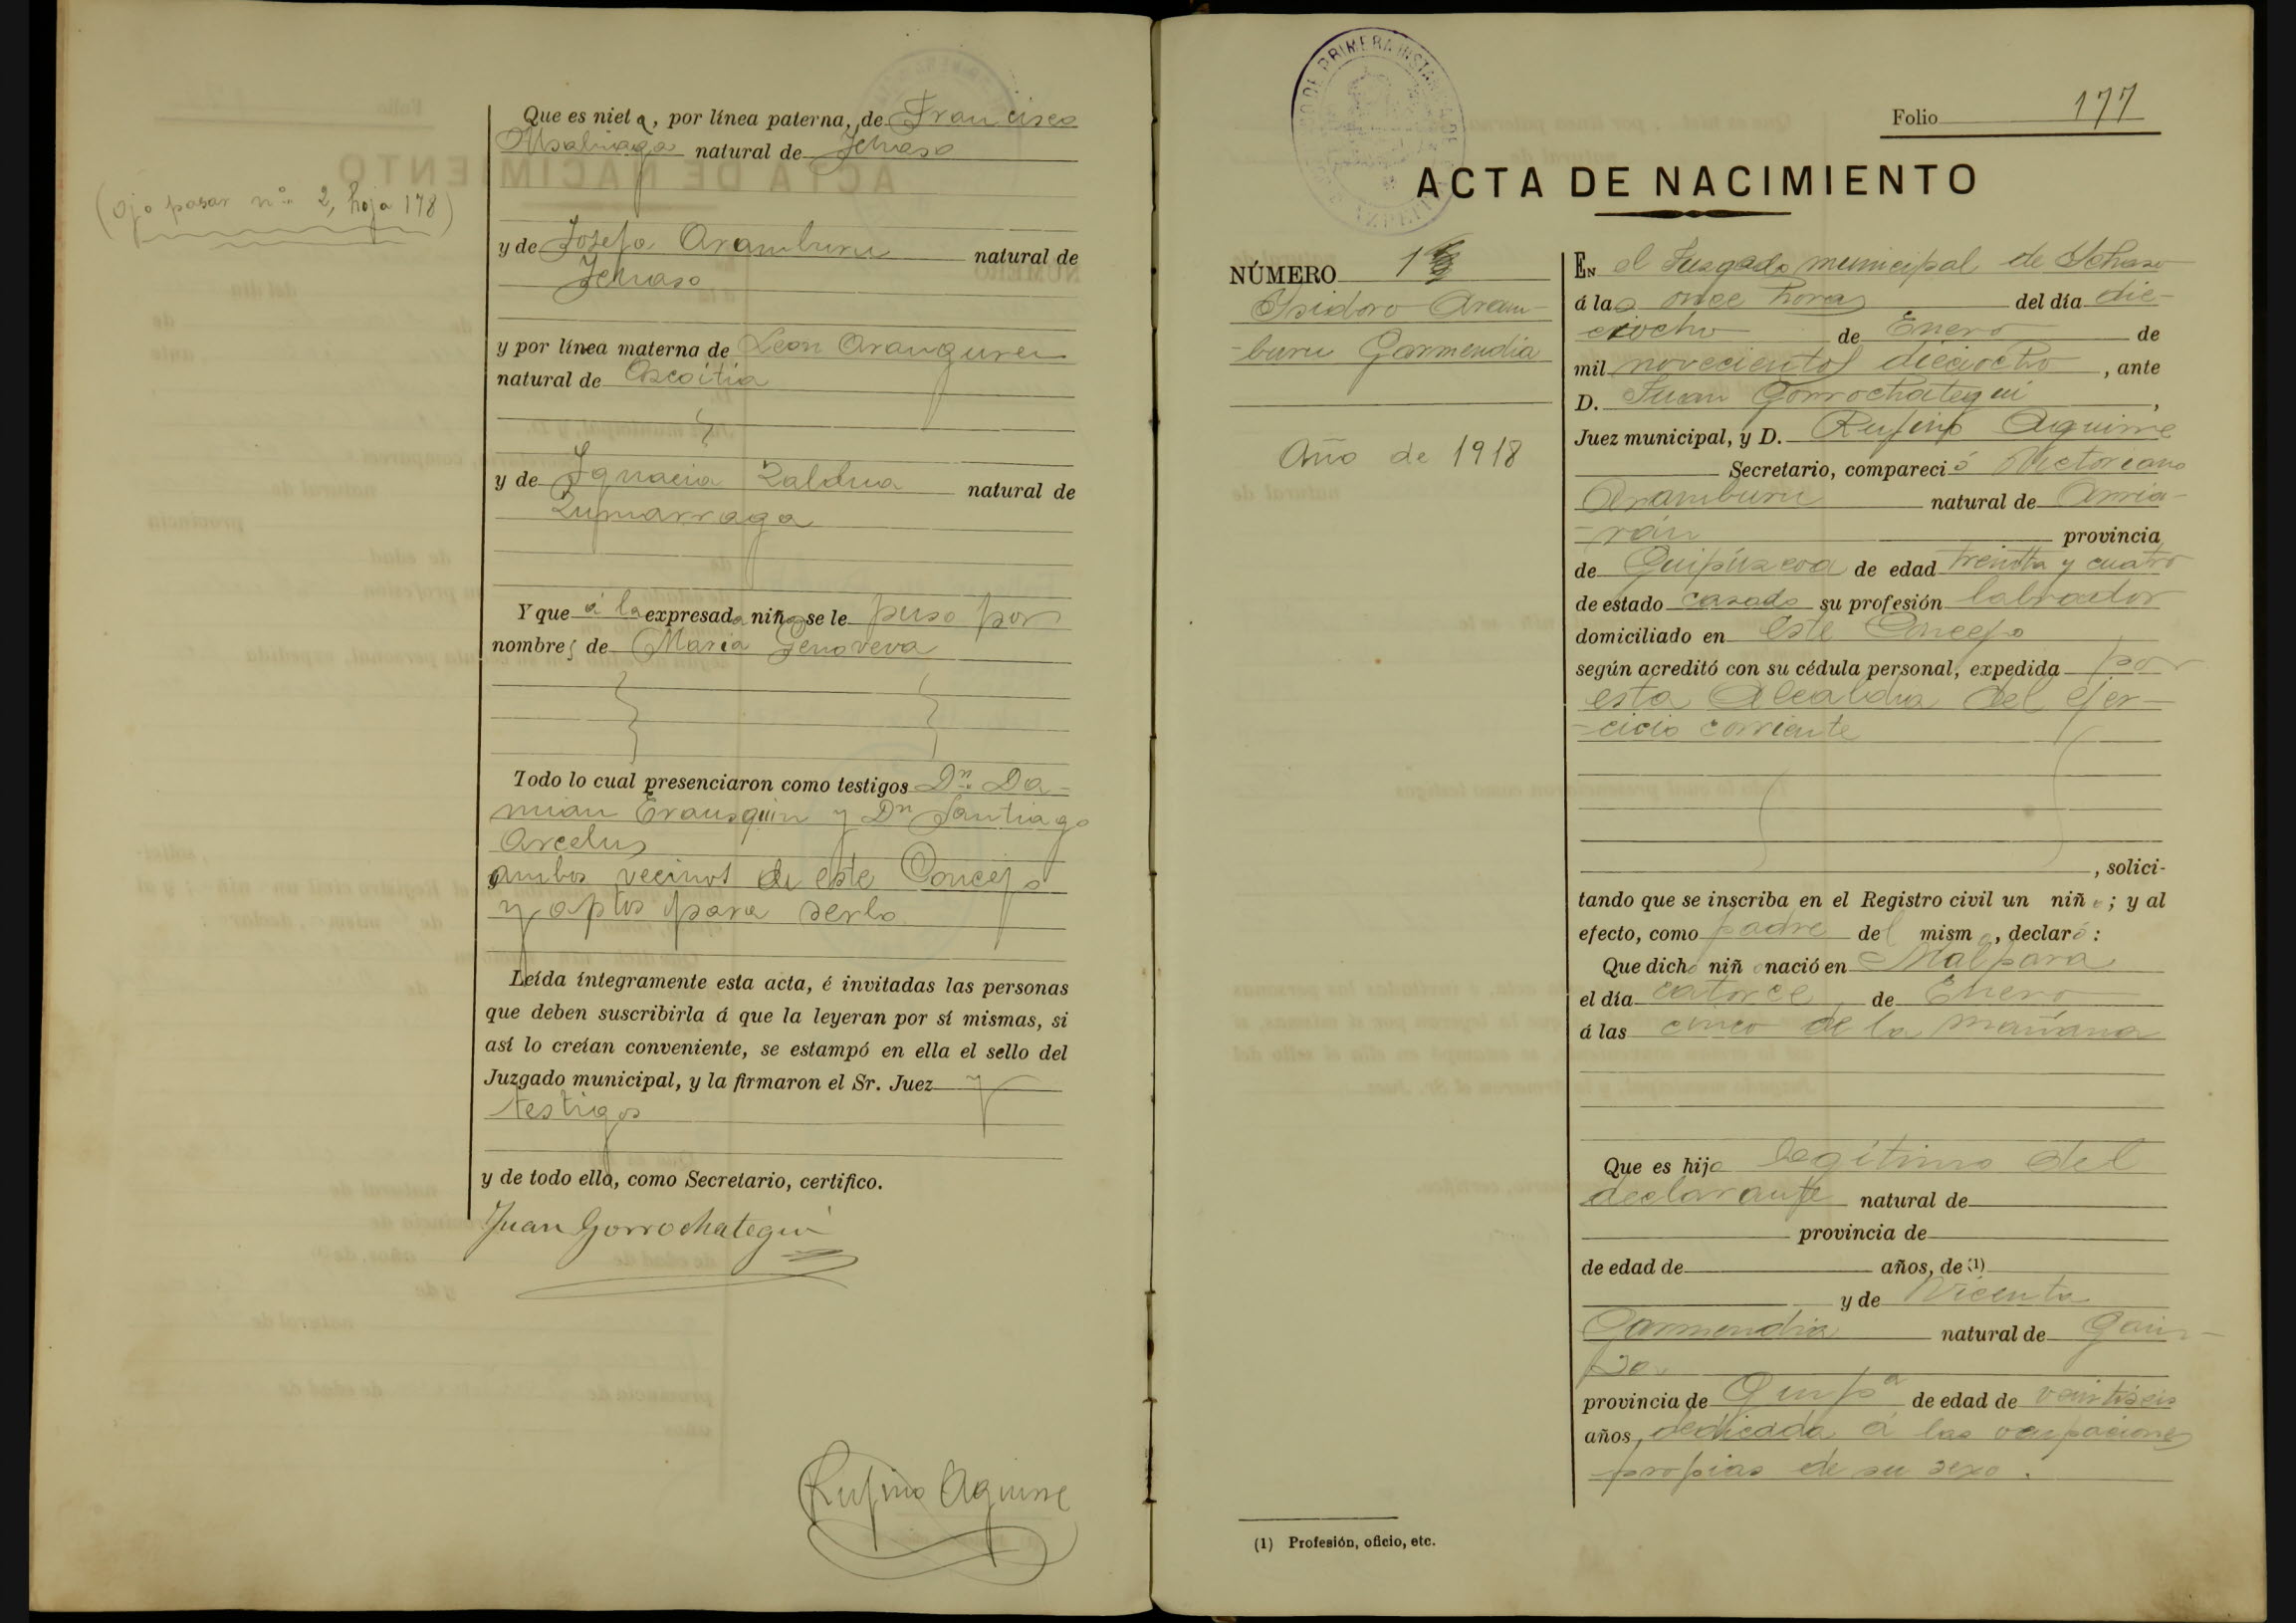 Que es nieta, por línea paterna, de Francisco
Alsalinaga natural de Ichaso
(Ojo pasar nº 2, hoja 178)
y de Josefa Aramburu natural de
Ichaso
y por línea materna de Leon Aranguren
natural de Azcoitia
y de Ignacia Zaldua natural de
Zumarraga
Y que á la expresada niña se le puso por
nombres de Maria Genoveva
Todo lo cual presenciaron como testigos Dn Da-
mian Erausquin y Dn Santiago
Arcelus
ambos vecinos de este Concejo
y aptos para serlo
Leída íntegramente esta acta, é invitadas las personas
que deben suscribirla á que la leyeran por sí mismas, si
así lo creían conveniente, se estampó en ella el sello del
Juzgado municipal, y la firmaron el Sr. Juez y
testigos
y de todo ello, como Secretario, certifico.
Juan Gorrochategui
Rufino Aguirre
Folio 177
ACTA DE NACIMIENTO
NÚMERO 1
Isidoro Aram-
-buru Garmendia
Año de 1918
En el Juzgado municipal de Ichaso
á las once horas del día die-
ciocho de Enero de
mil novecientos dieciocho, ante
D. Juan Gorrochategui,
Juez municipal, y D. Rufino Aguirre
Secretario, compareció Victoriano
Aramburu natural de Arria-
-rán provincia
de Guipúzcoa de edad treinta y cuatro
de estado casado su profesión labrador
domiciliado en este Concejo
según acreditó con su cédula personal, expedida por
esta Alcaldia del ejer-
-cicio corriente
, solici-
tando que se inscriba en el Registro civil un niño; y al
efecto, como padre del mismo, declaró:
Que dicho niño nació en Malpara
el día catorce de Enero
á las cinco de la mañana
Que es hijo legítimo del
declarante natural de
provincia de
de edad de años, de (1)
y de Vicenta
Garmendia natural de Gain-
za
provincia de Guipª de edad de veintiseis
años, dedicada á las ocupaciones
propias de su sexo.
(1) Profesión, oficio, etc.